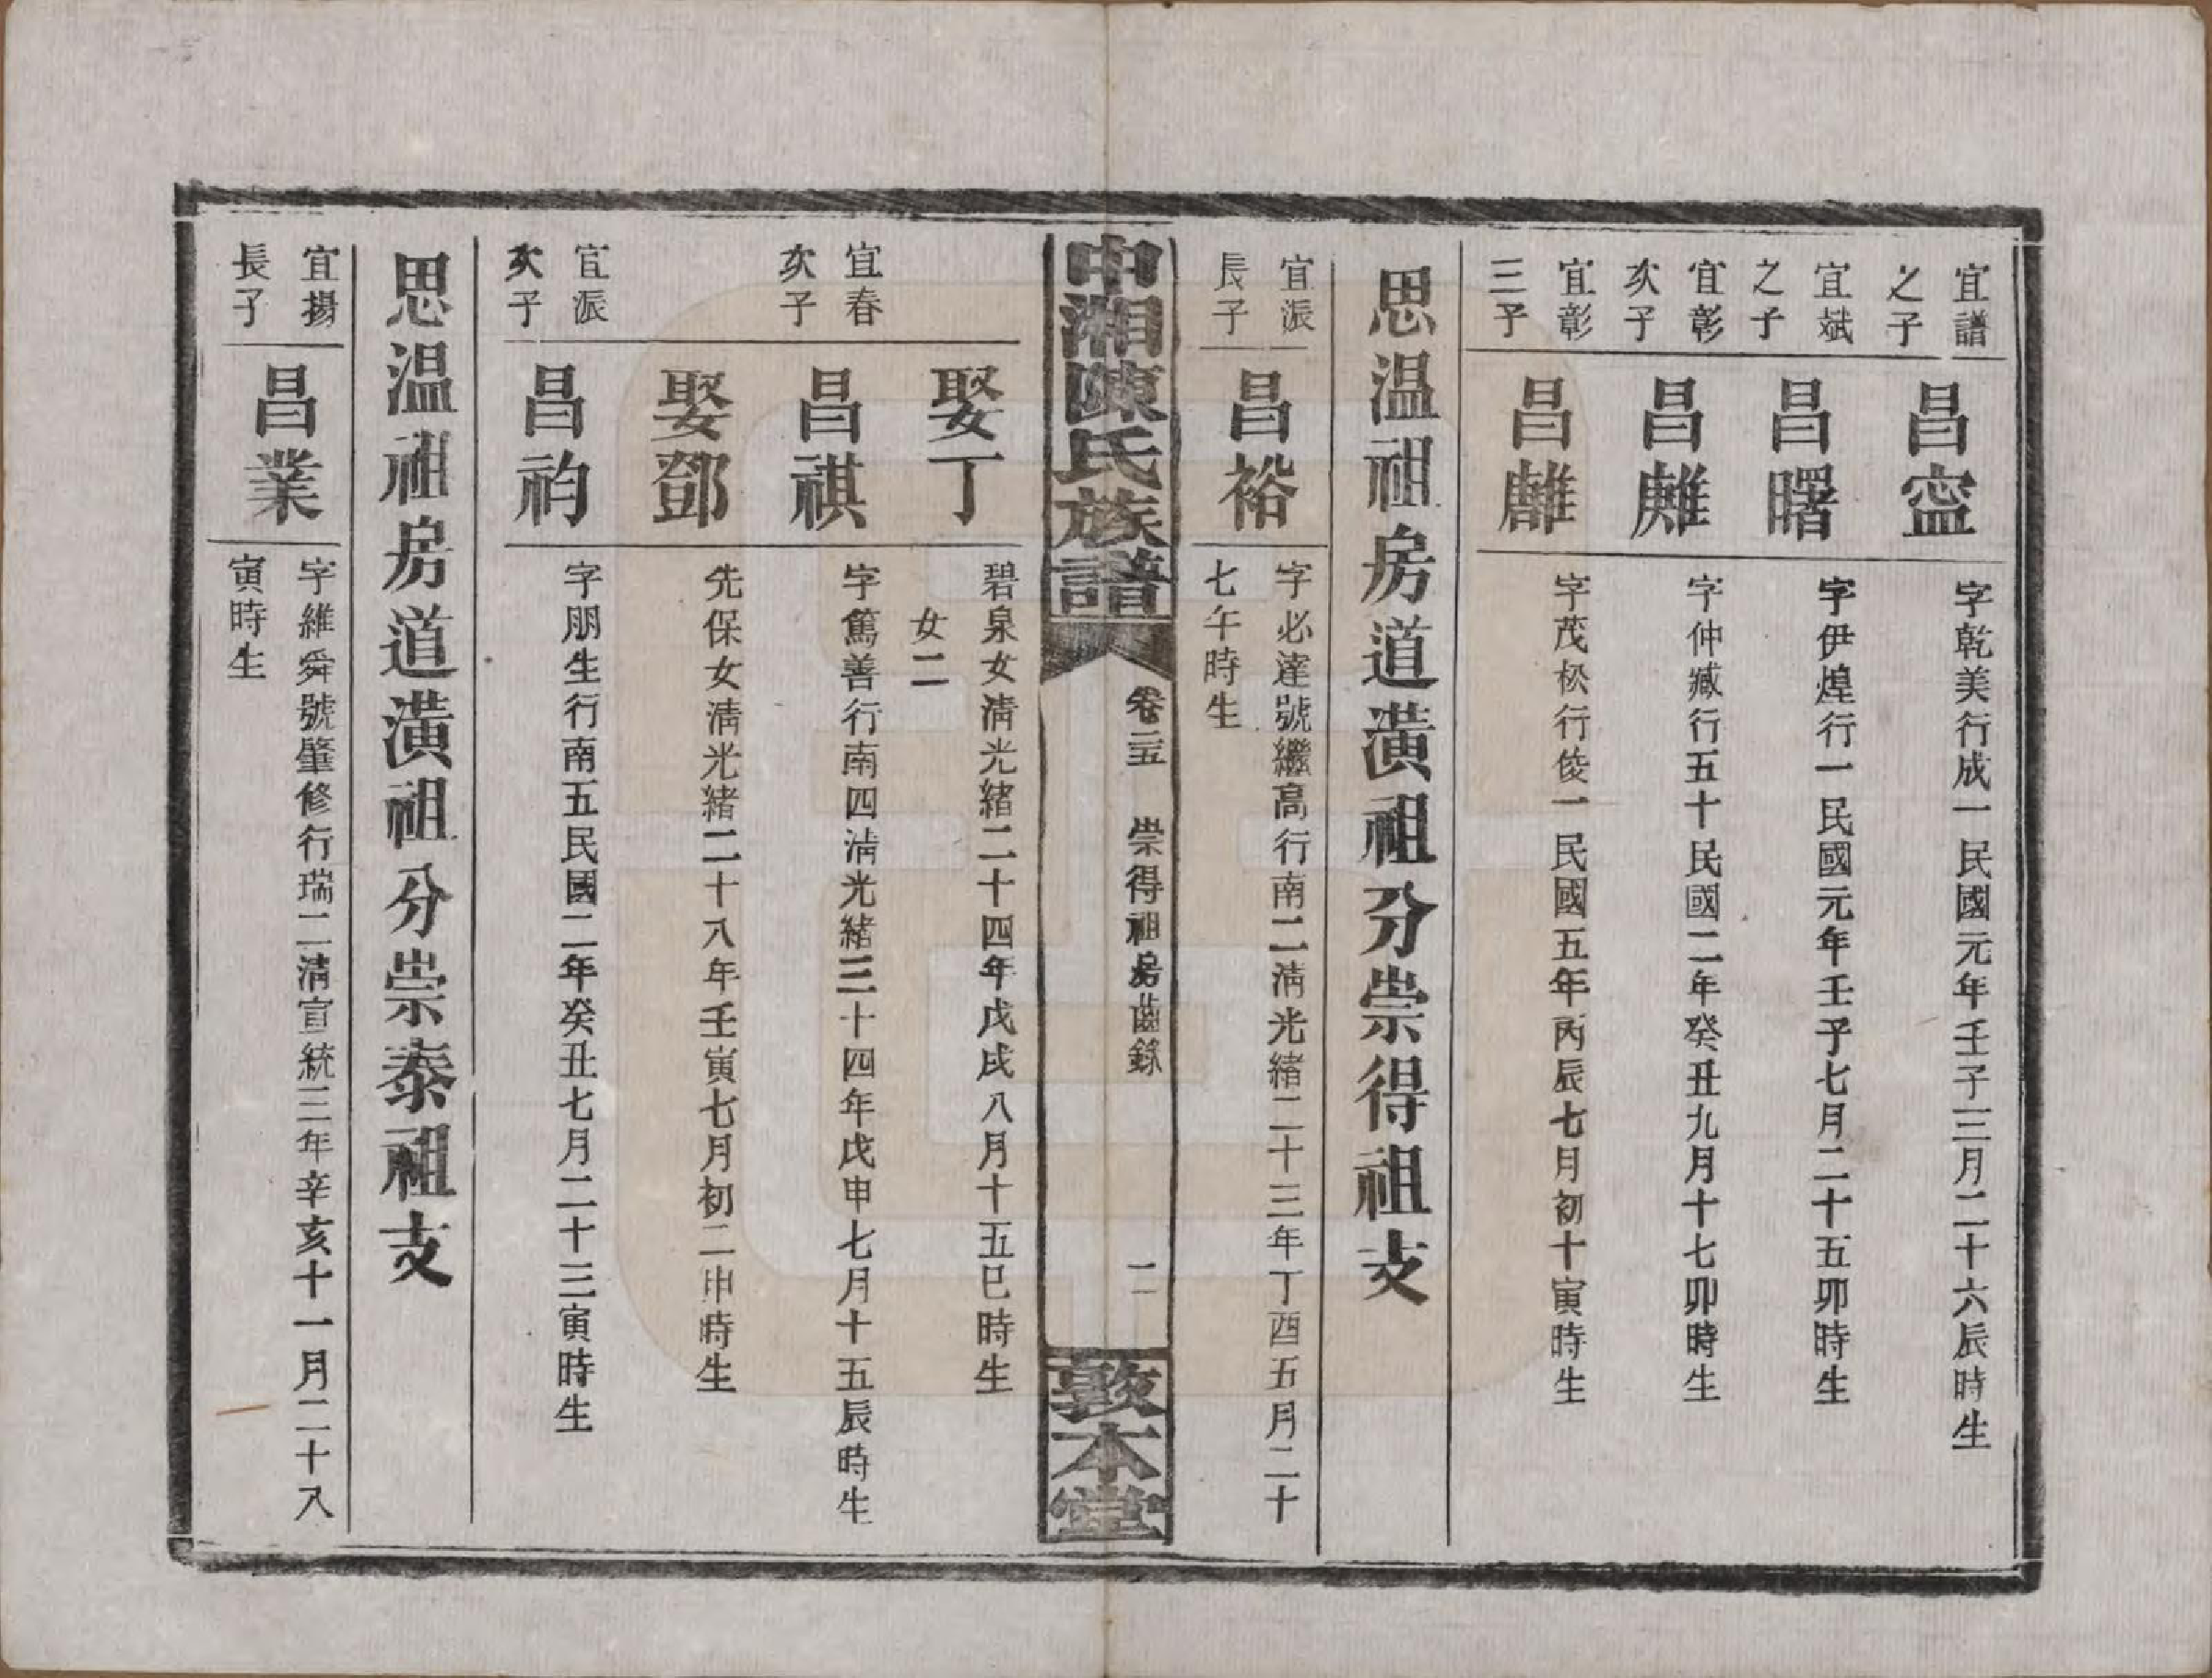 宜譜
之子
昌寍
字乾美行成一民國元年壬子三月二十六辰時生
宜斌
之子
昌曙
字伊煌行一民國元年壬子七月二十五卯時生
宜彰
次子
昌
字仲臧行五十民國二年癸丑九月十七卯時生
宜彰
三子
昌
字茂松行俊一民國五年丙辰七月初十寅時生
思温祖房道潢祖分崇得祖支
宜派
長子
昌裕
字必達號繼高行南二淸光緒二十三年丁酉五月二十
七午時生
中湘陳氏族譜
卷二十五
崇得祖房齒錄
二
敦本堂
娶丁
碧泉女淸光緒二十四年戊戌八月十五巳時生
女二
宜春
次子
昌祺
字篤善行南四淸光緒三十四年戊申七月十五辰時生
娶鄧
先保女淸光緒二十八年壬寅七月初二申時生
宜派
次子
昌礿
字朋生行南五民國二年癸丑七月二十三寅時生
思温祖房道潢祖分崇泰祖支
宜揚
長子
昌業
字維舜號肇修行瑞二淸宣統三年辛亥十一月二十八
寅時生